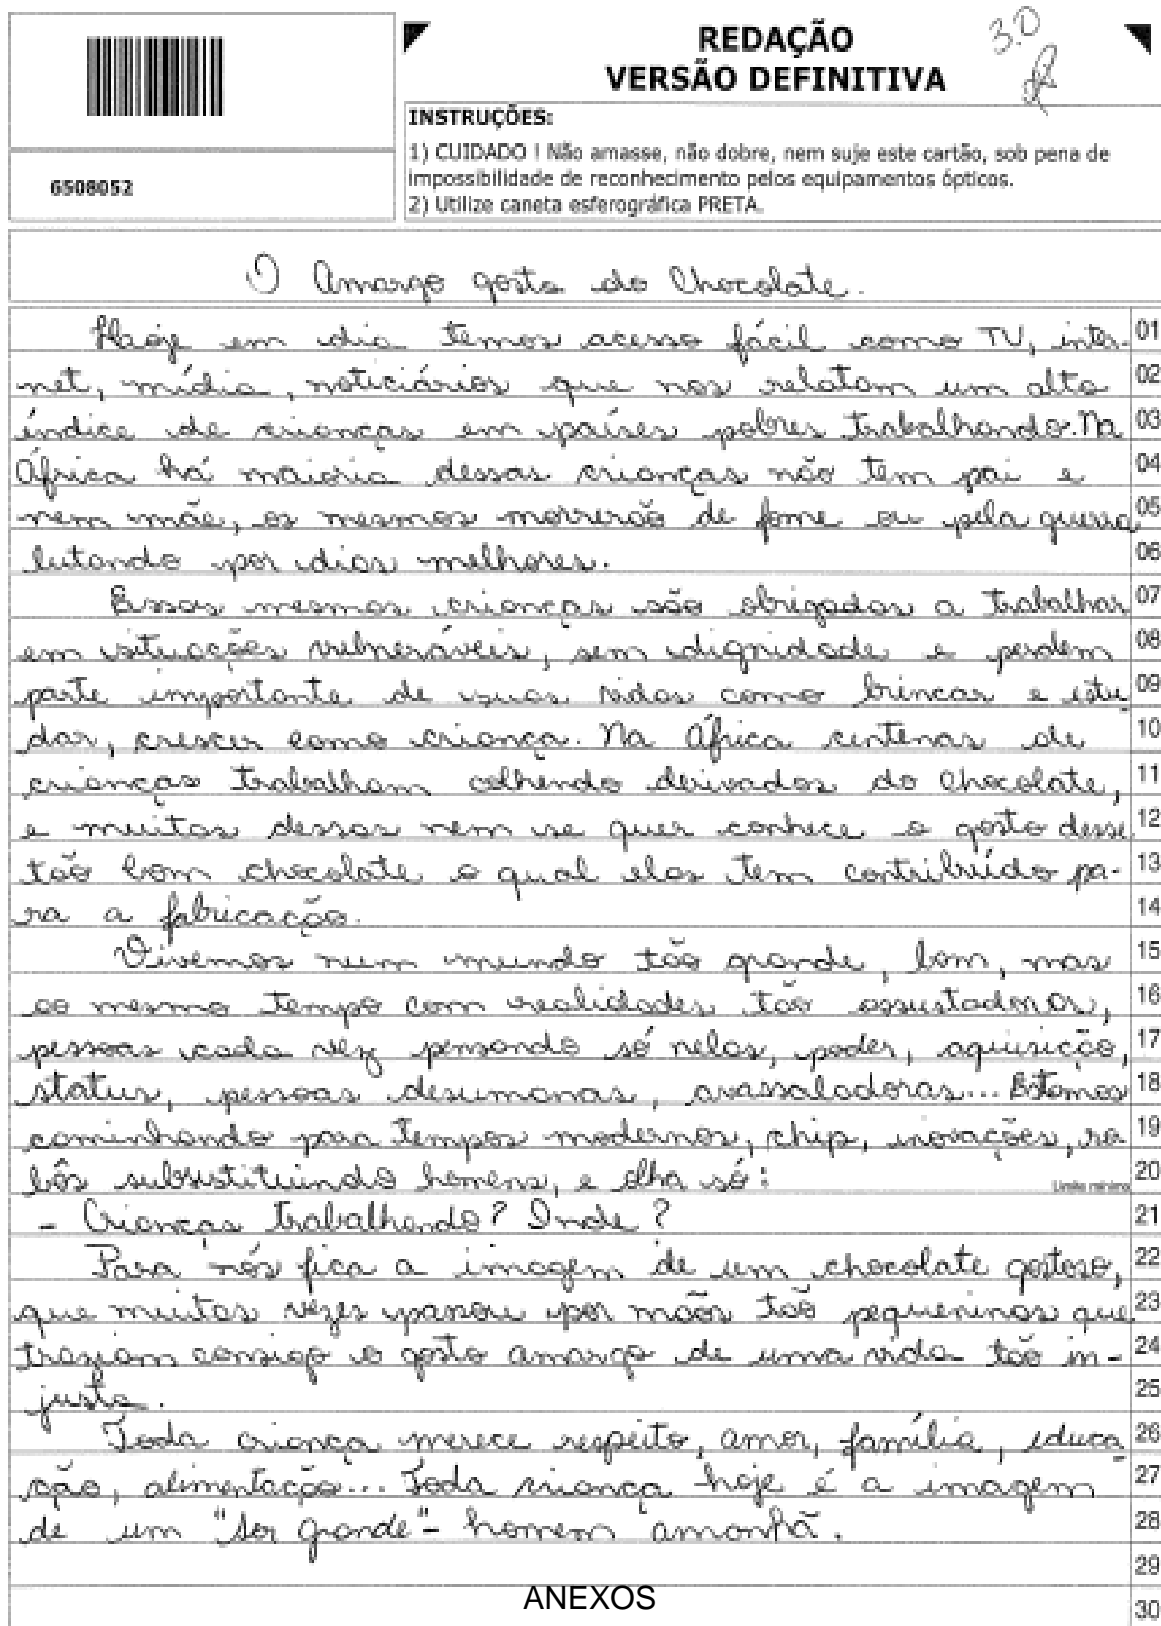 REDAÇÃO
VERSÃO DEFINITIVA
3.0
INSTRUÇÕES:
1) CUIDADO ! Não amasse, não dobre, nem suje este cartão, sob pena de
impossibilidade de reconhecimento pelos equipamentos ópticos.
2) Utilize caneta esferográfica PRETA.
6508052
O Amargo gosto do Chocolate.
em dia temos acesso fácil como TV, inter- 01
net, mídia, noticiários que nos relatam um alto 02
índice de crianças em países pobres trabalhando. Na 03
África há maioria dessas crianças não tem pai e 04
nem mãe, os mesmos morrerão de fome ou pela guerra 05
lutando por dias melhores. 06
Essas mesmas crianças são obrigadas a trabalhar 07
em situações vulneráveis, sem dignidade e perdem 08
parte importante de suas vidas como brincar e estu 09
dar, crescer como criança. Na África centenas de 10
crianças trabalham colhendo derivados do chocolate, 11
e muitas dessas nem se quer conhece o gosto desse 12
tão bom chocolate o qual elas tem contribuído pa- 13
ra a fabricação. 14
Vivemos num mundo tão grande, bom, mas 15
ao mesmo tempo com realidades tão assustadoras, 16
pessoas cada vez pensando só nelas, poder, aquisição, 17
status, pessoas desumanas, avassaladoras... Estamos 18
caminhando para tempos modernos, chip, inovações, ro 19
bôs subsistituindo homens, e olha só: 20
Limite mínimo
- Crianças trabalhando? Onde? 21
Para nós fica a imagem de um chocolate gostoso, 22
que muitas vezes passou por mãos tão pequeninas que 23
traziam consigo o gosto amargo de uma vida tão in- 24
justa. 25
Toda criança merece respeito, amor, família, educa 26
ção, alimentação... Toda criança hoje é a imagem 27
de um "ser grande" - homem amanhã. 28
29
ANEXOS
30